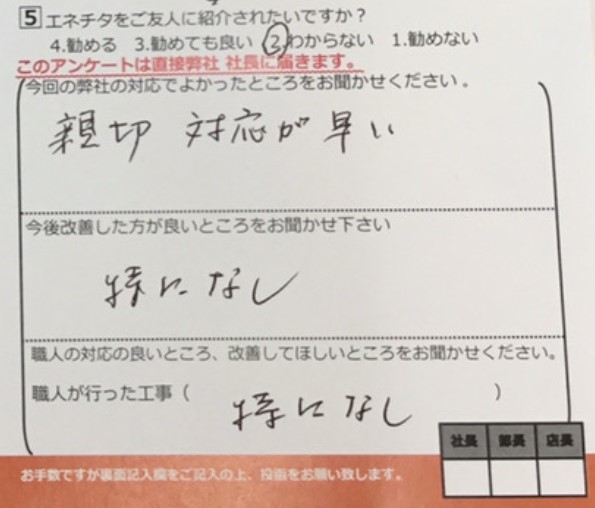 5 エネチタをご友人に紹介されたいですか？
4.勧める 3.勧めても良い 2.わからない 1.勧めない
このアンケートは直接弊社 社長に届きます。
今回の弊社の対応でよかったところをお聞かせください。
親切 対応が早い
今後改善した方が良いところをお聞かせ下さい
特になし
職人の対応の良いところ、改善してほしいところをお聞かせください。
職人が行った工事（ ）
特になし
社長 部長 店長
お手数ですが裏面記入欄をご記入の上、投函をお願い致します。